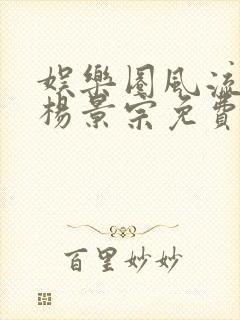 娱樂圈風流
楊景宗免費
百里妙妙